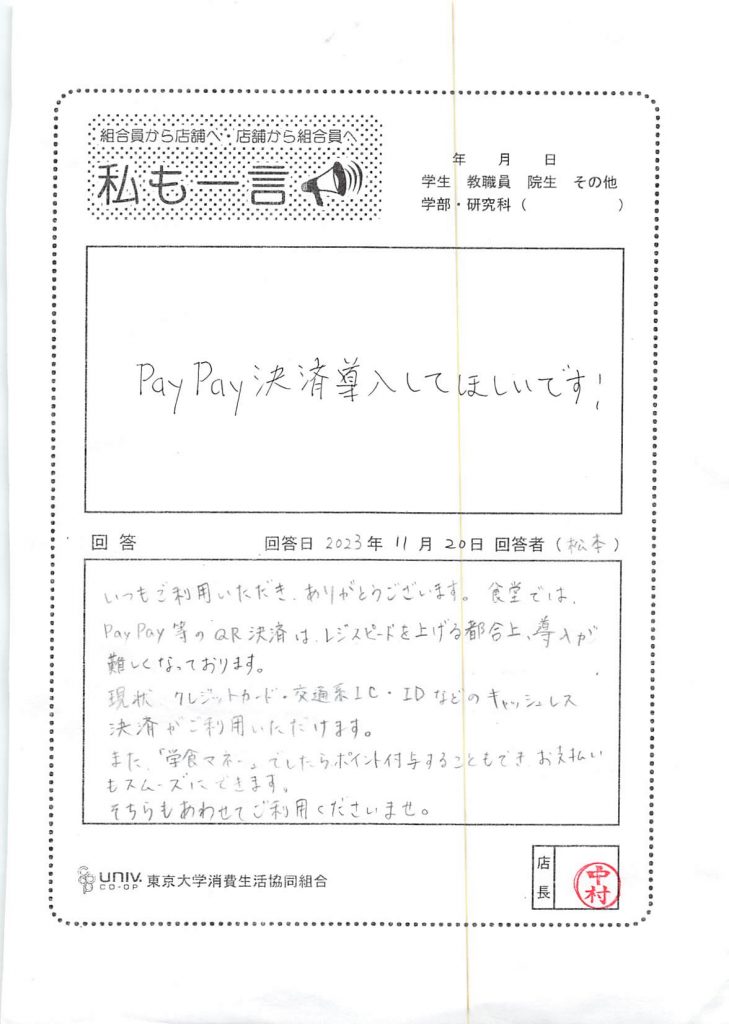 組合員から店舗へ・店舗から組合員へ
私も一言
年 月 日
学生 教職員 院生 その他
学部・研究科( )
PayPay決済導入してほしいです!
回答 回答日 2023年 11月 20日 回答者(松本)
いつもご利用いただき、ありがとうございます。食堂では、
PayPay等のQR決済は、レジスピードを上げる都合上、導入が
難しくなっております。
現状、クレジットカード・交通系IC・IDなどのキャッシュレス
決済がご利用いただけます。
また、「学食マネー」でしたらポイント付与することもでき お支払い
もスムーズにできます。
そちらもあわせてご利用くださいませ。
UNIV. CO-OP 東京大学消費生活協同組合
店長 中村